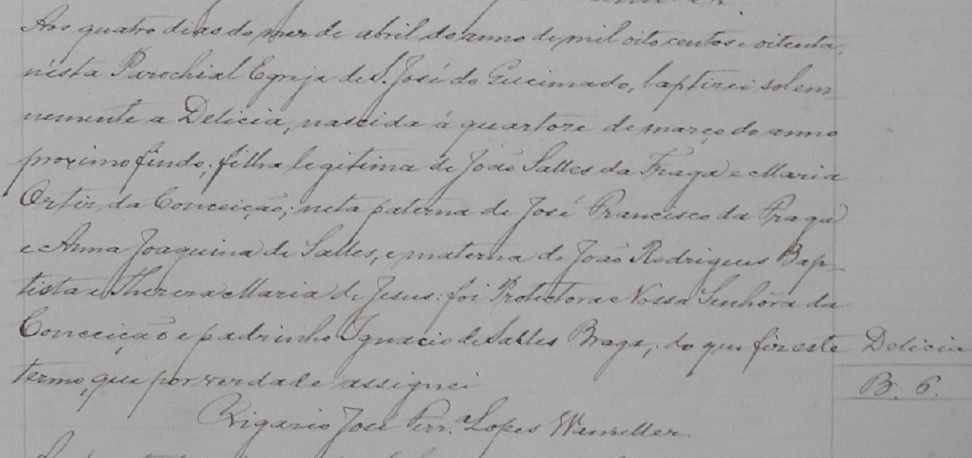 Aos quatro dias do mez de abril do anno de mil oito centos e oitenta,
nésta Parochial Egreja de S. José do Queimado, baptizei solem-
nemente a Delicia, nascida á quartoze de março do anno
proximo findo; filha legitima de João Salles da Fraga e Maria
Ortiz da Conceição; neta paterna de José Francisco da Fraga
e Anna Joaquina de Salles, e materna de João Rodrigues Bap-
tista e Thereza Maria de Jesus: foi Protectora Nossa Senhora da
Conceição e padrinho Ignacio de Salles Braga; do que fiz este
termo, que por verdade assignei
Vigario José Ferr.ª Lopes Wanzeller.
Delicia
B. 6.